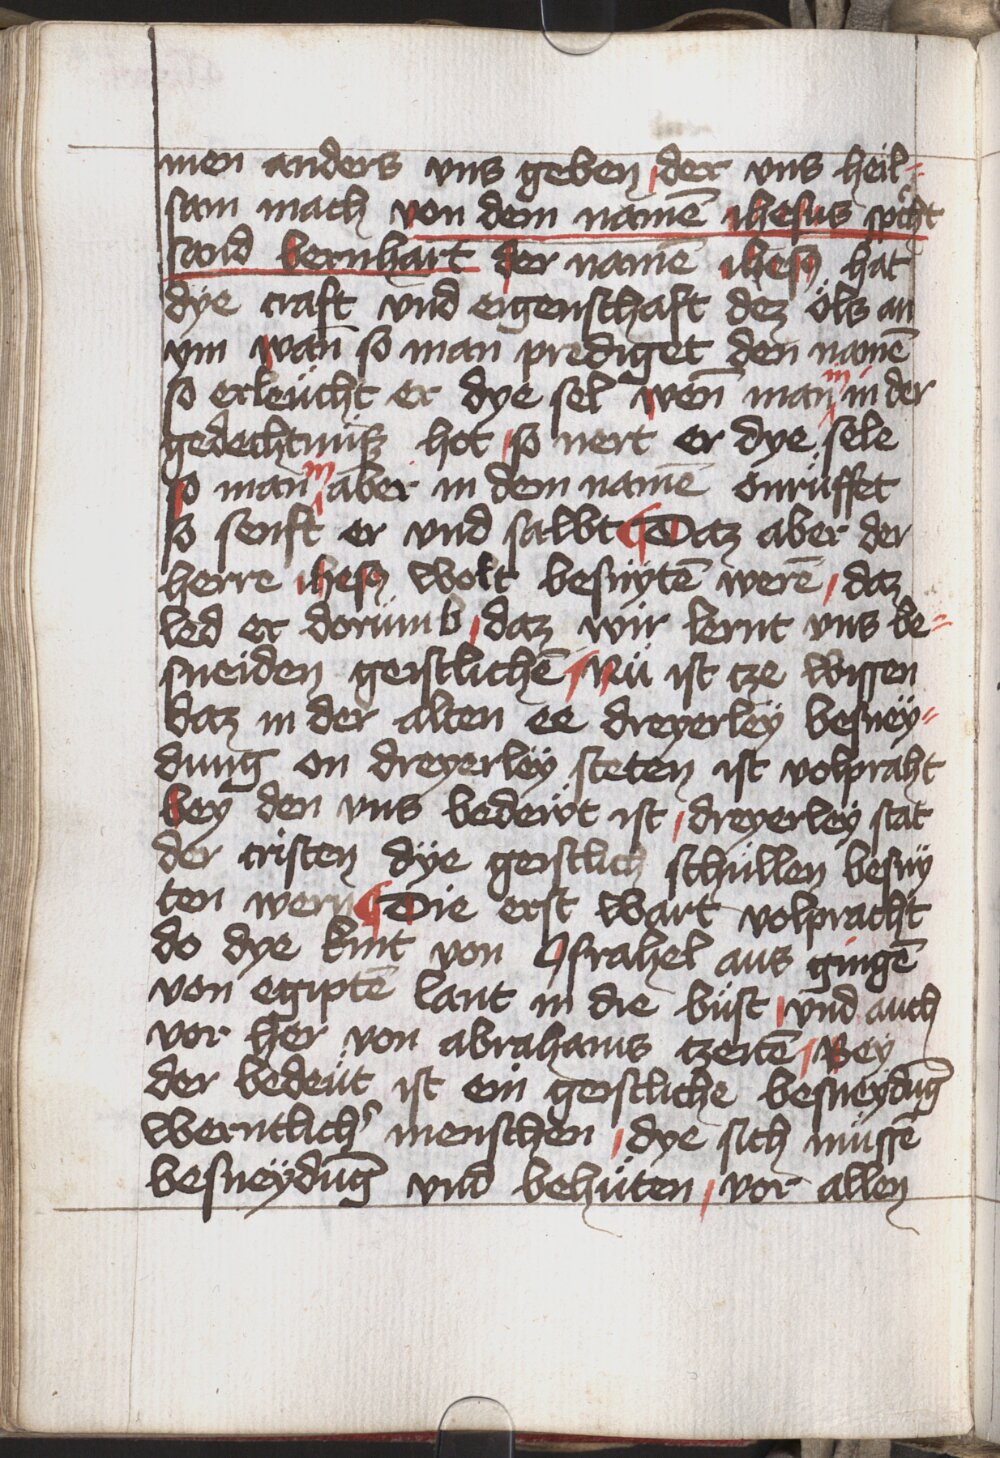 men anders vns geben / der vns heil=
sam mach von dem namē ihesus spͥcht
sand bernhart der namē ihesꝫ hat
dye craft vnd eigenschaft dez öls an
ym wan̄ so man prediget den namē
so erleücht er dye sel wēn man in in der
gedechtnüß hot / so nert er dye sele
so man in aber in dem namē önrüffet
so senft er vnd salbt ¶ Daz aber der
herre ihesꝫ wolt besnytē werē / daz
led er dorümb / daz wir lernt vns be=
sneiden geistlichē / Nü ist tze wissen
daz in der alten ee dreyerleÿ besneÿ=
dung on dreyerleÿ steten ist volpraht
bey den vns bedewt ist / dreyerleÿ stat
der cristen dÿe geistlich schüllen besnÿ
ten wern ¶ Die erst wart volpracht
do dye kint von Israhel aus gingē
von egiptē lant in die wüst / vnd auch
vor her von abrahams tzeitē / Bey
der bedeüt ist ein geistliche besneydūg
werntlichʼ menschen / dye sich müssē
besneÿdūg vnd behüten / vor allen